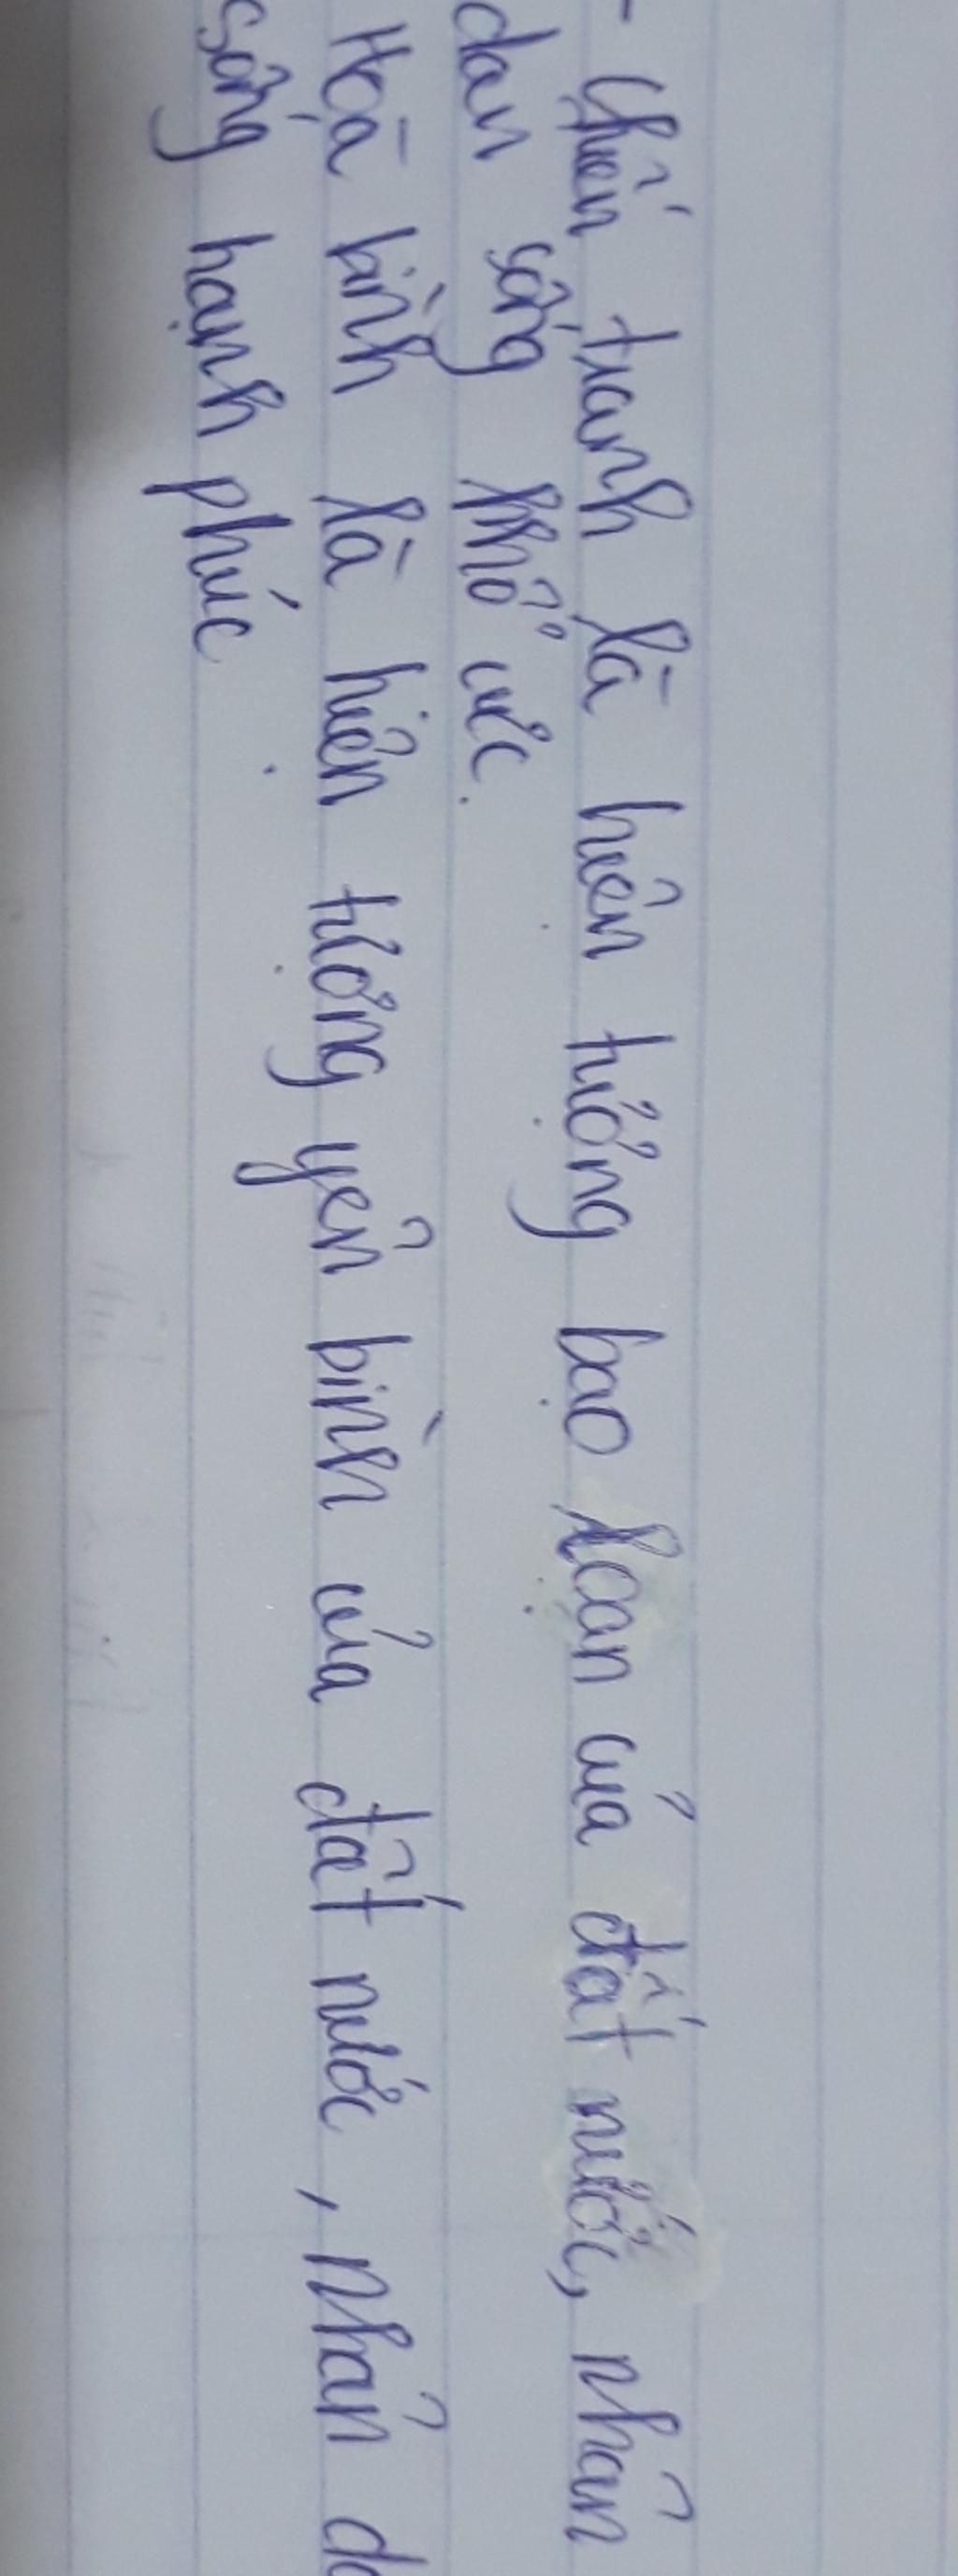 - Chiến tranh là hiện tượng bạo loạn của đất nước, nhân
dân sống khổ cực.
Hoà bình là hiện tượng yên bình của đất nước, nhân
sống hạnh phúc